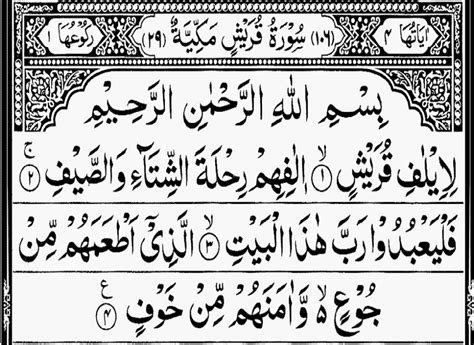 اٰيَاتُهَا ٤ (١٠٦) سُوْرَةُ قُرَيْشٍ مَكِّيَّةٌ (٢٩) رُكُوْعُهَا ١
بِسْمِ اللهِ الرَّحْمٰنِ الرَّحِيْمِ
لِاِيْلٰفِ قُرَيْشٍ ۙ ﴿١﴾ اٖلٰفِهِمْ رِحْلَةَ الشِّتَآءِ وَالصَّيْفِ ۚ ﴿٢﴾
فَلْيَعْبُدُوْا رَبَّ هٰذَا الْبَيْتِ ۙ ﴿٣﴾ الَّذِيْٓ اَطْعَمَهُمْ مِّنْ
جُوْعٍ ۙ٥ وَّاٰمَنَهُمْ مِّنْ خَوْفٍ ﴿٤﴾ ع